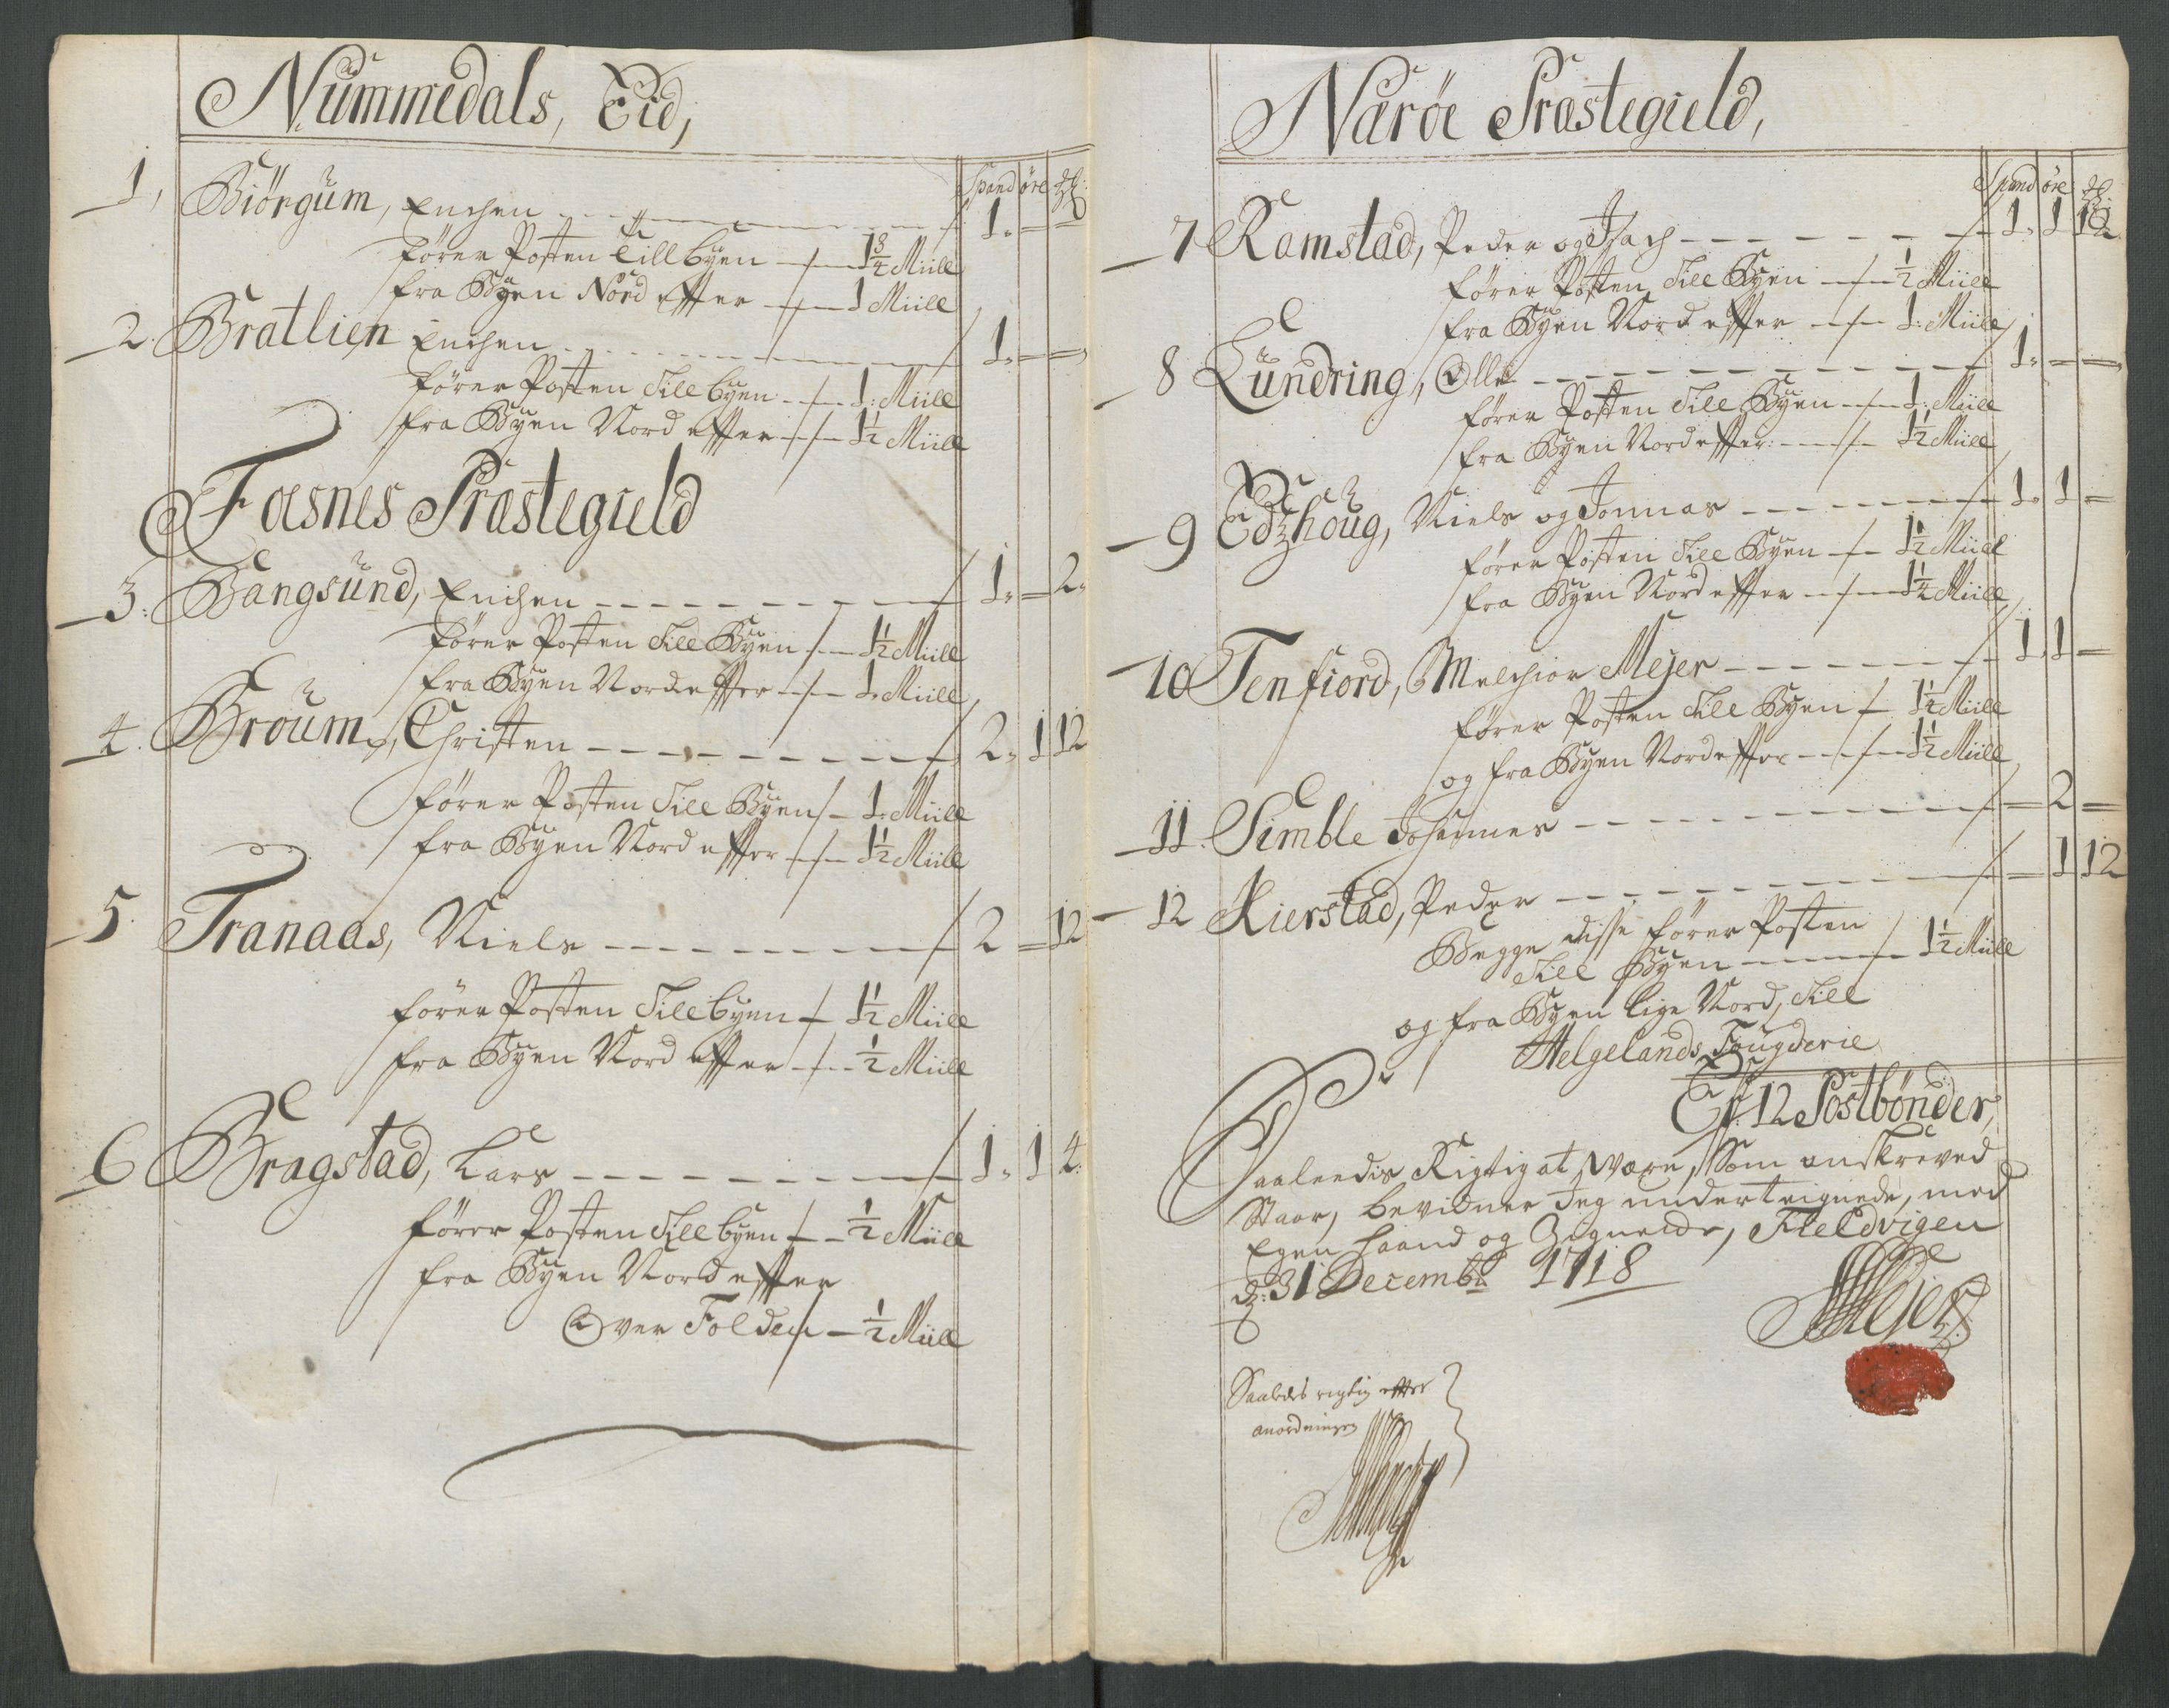 Nummedals, Eid,
Spand öre
1, Biörgum, Enchen 1.
förer Posten Till byen 1 3/4 Miill
fra Byen Nord effter 1 Miill
2. Bratlien Enchen 1.
förer Posten Till byen 1. Miill
fra Byen Nord effter 1 1/2 Miill
Fosnes Præstegield
3. Bangsund, Enchen 1. 2.
förer Posten Till Byen 1 1/2 Miill
fra Byen Nord effter 1. Miill
4. Broum, Christen 2. 1 12
förer Posten Till Byen 1. Miill
fra Byen Nord effter 1 1/2 Miill
5. Tranaas, Niels 2 12
förer Posten Till byen 1 1/2 Miill
fra Byen Nord effter 1/2 Miill
6 Bragstad, Lars 1. 1 4.
förer Posten Till byen 1/2 Miill
fra Byen Nord effter
Over Folden 1/2 Miill
Næröe Præstegield,
Spand öre
7 Ramstad, Peder og Isach 1. 1 12
förer Posten Till Byen 1/2 Miill
fra Byen Nord effter 1. Miill
8 Lundring, Olle 1.
förer Posten Till Byen 1. Miill
fra Byen Nord effter 1 1/2 Miill
9 Edzhoug, Niels og Jonnas 1. 1
förer Posten Till Byen 1 1/2 Miill
fra Byen Nord effter 1 1/4 Miill
10 Tenfiord, Melchior Mejer 1 1
förer Posten Till Byen 1 1/4 Miill
og fra Byen Nord effter 1 1/2 Miill
11. Simble Johannes 2
12 Kierstad, Peder 1 12
Begge disse förer Posten
Till Byen 1 1/2 Miill
og fra Byen lige Nord, Till
Helgelands Fougderie
Er 12 Postbönder,
Saaleedis Rigtig at være, Som anskreved
Staar, bevidner Jeg underteignede, med
Egen haand og Zignete, Fieldvigen
d: 31 Decembr 1718
Mejer
Saaledes rigtig effter
anordningen